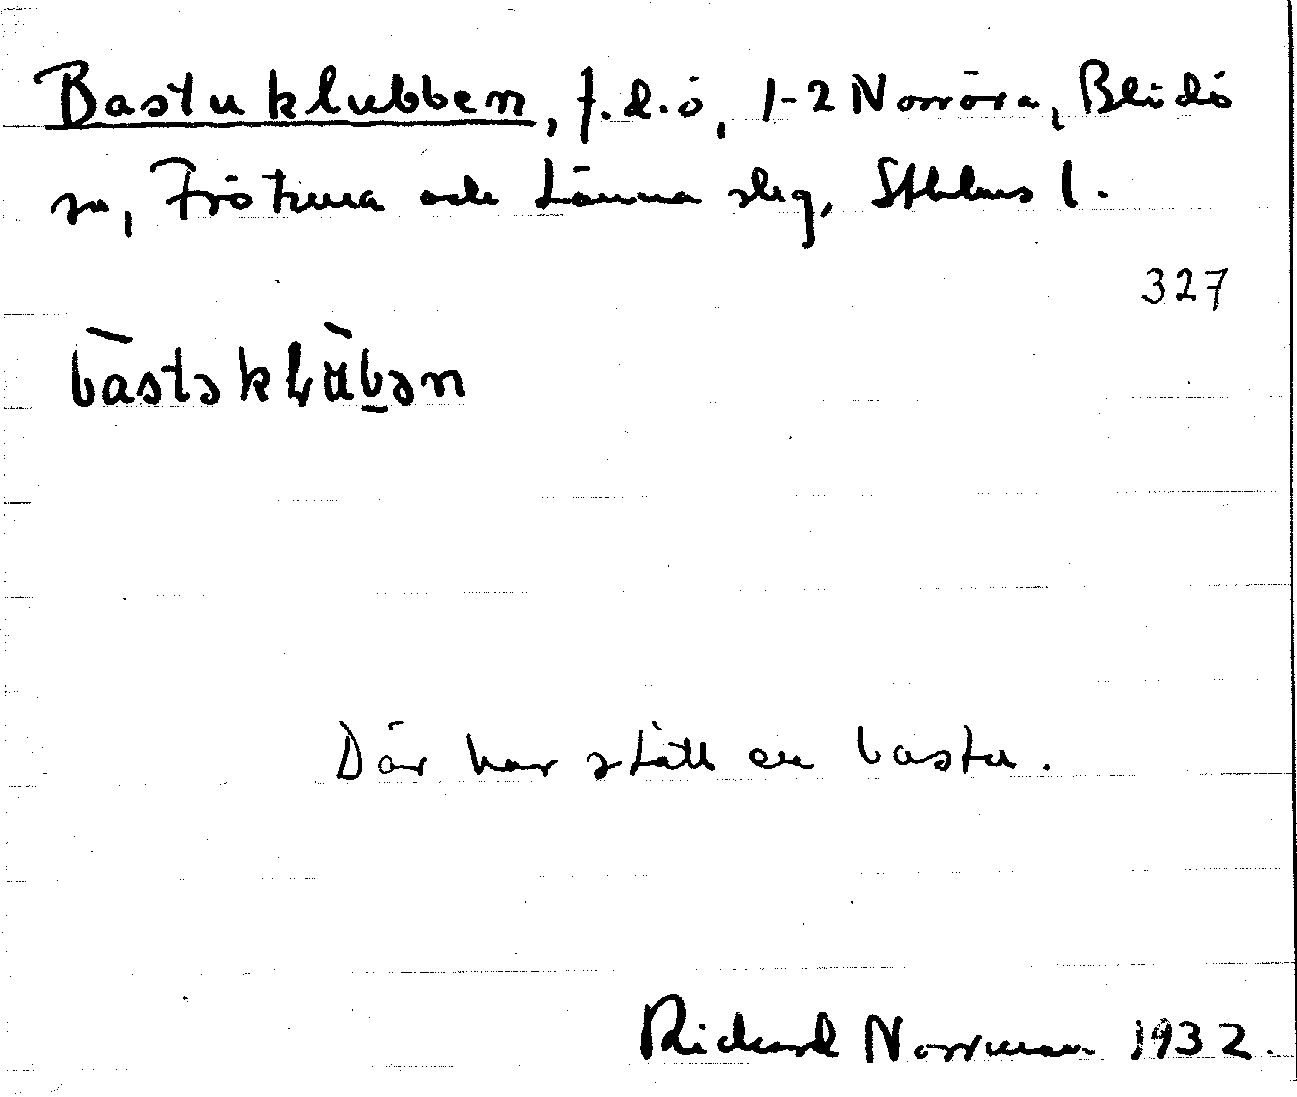 Bastuklubben, f.d.ö, 1-2 Norröra, Blidö
sn, Frötuna och Länna slg, Sthlms l.
327
bàstəklùbən
Där har stått en bastu.
Rickard Norrman 1932.